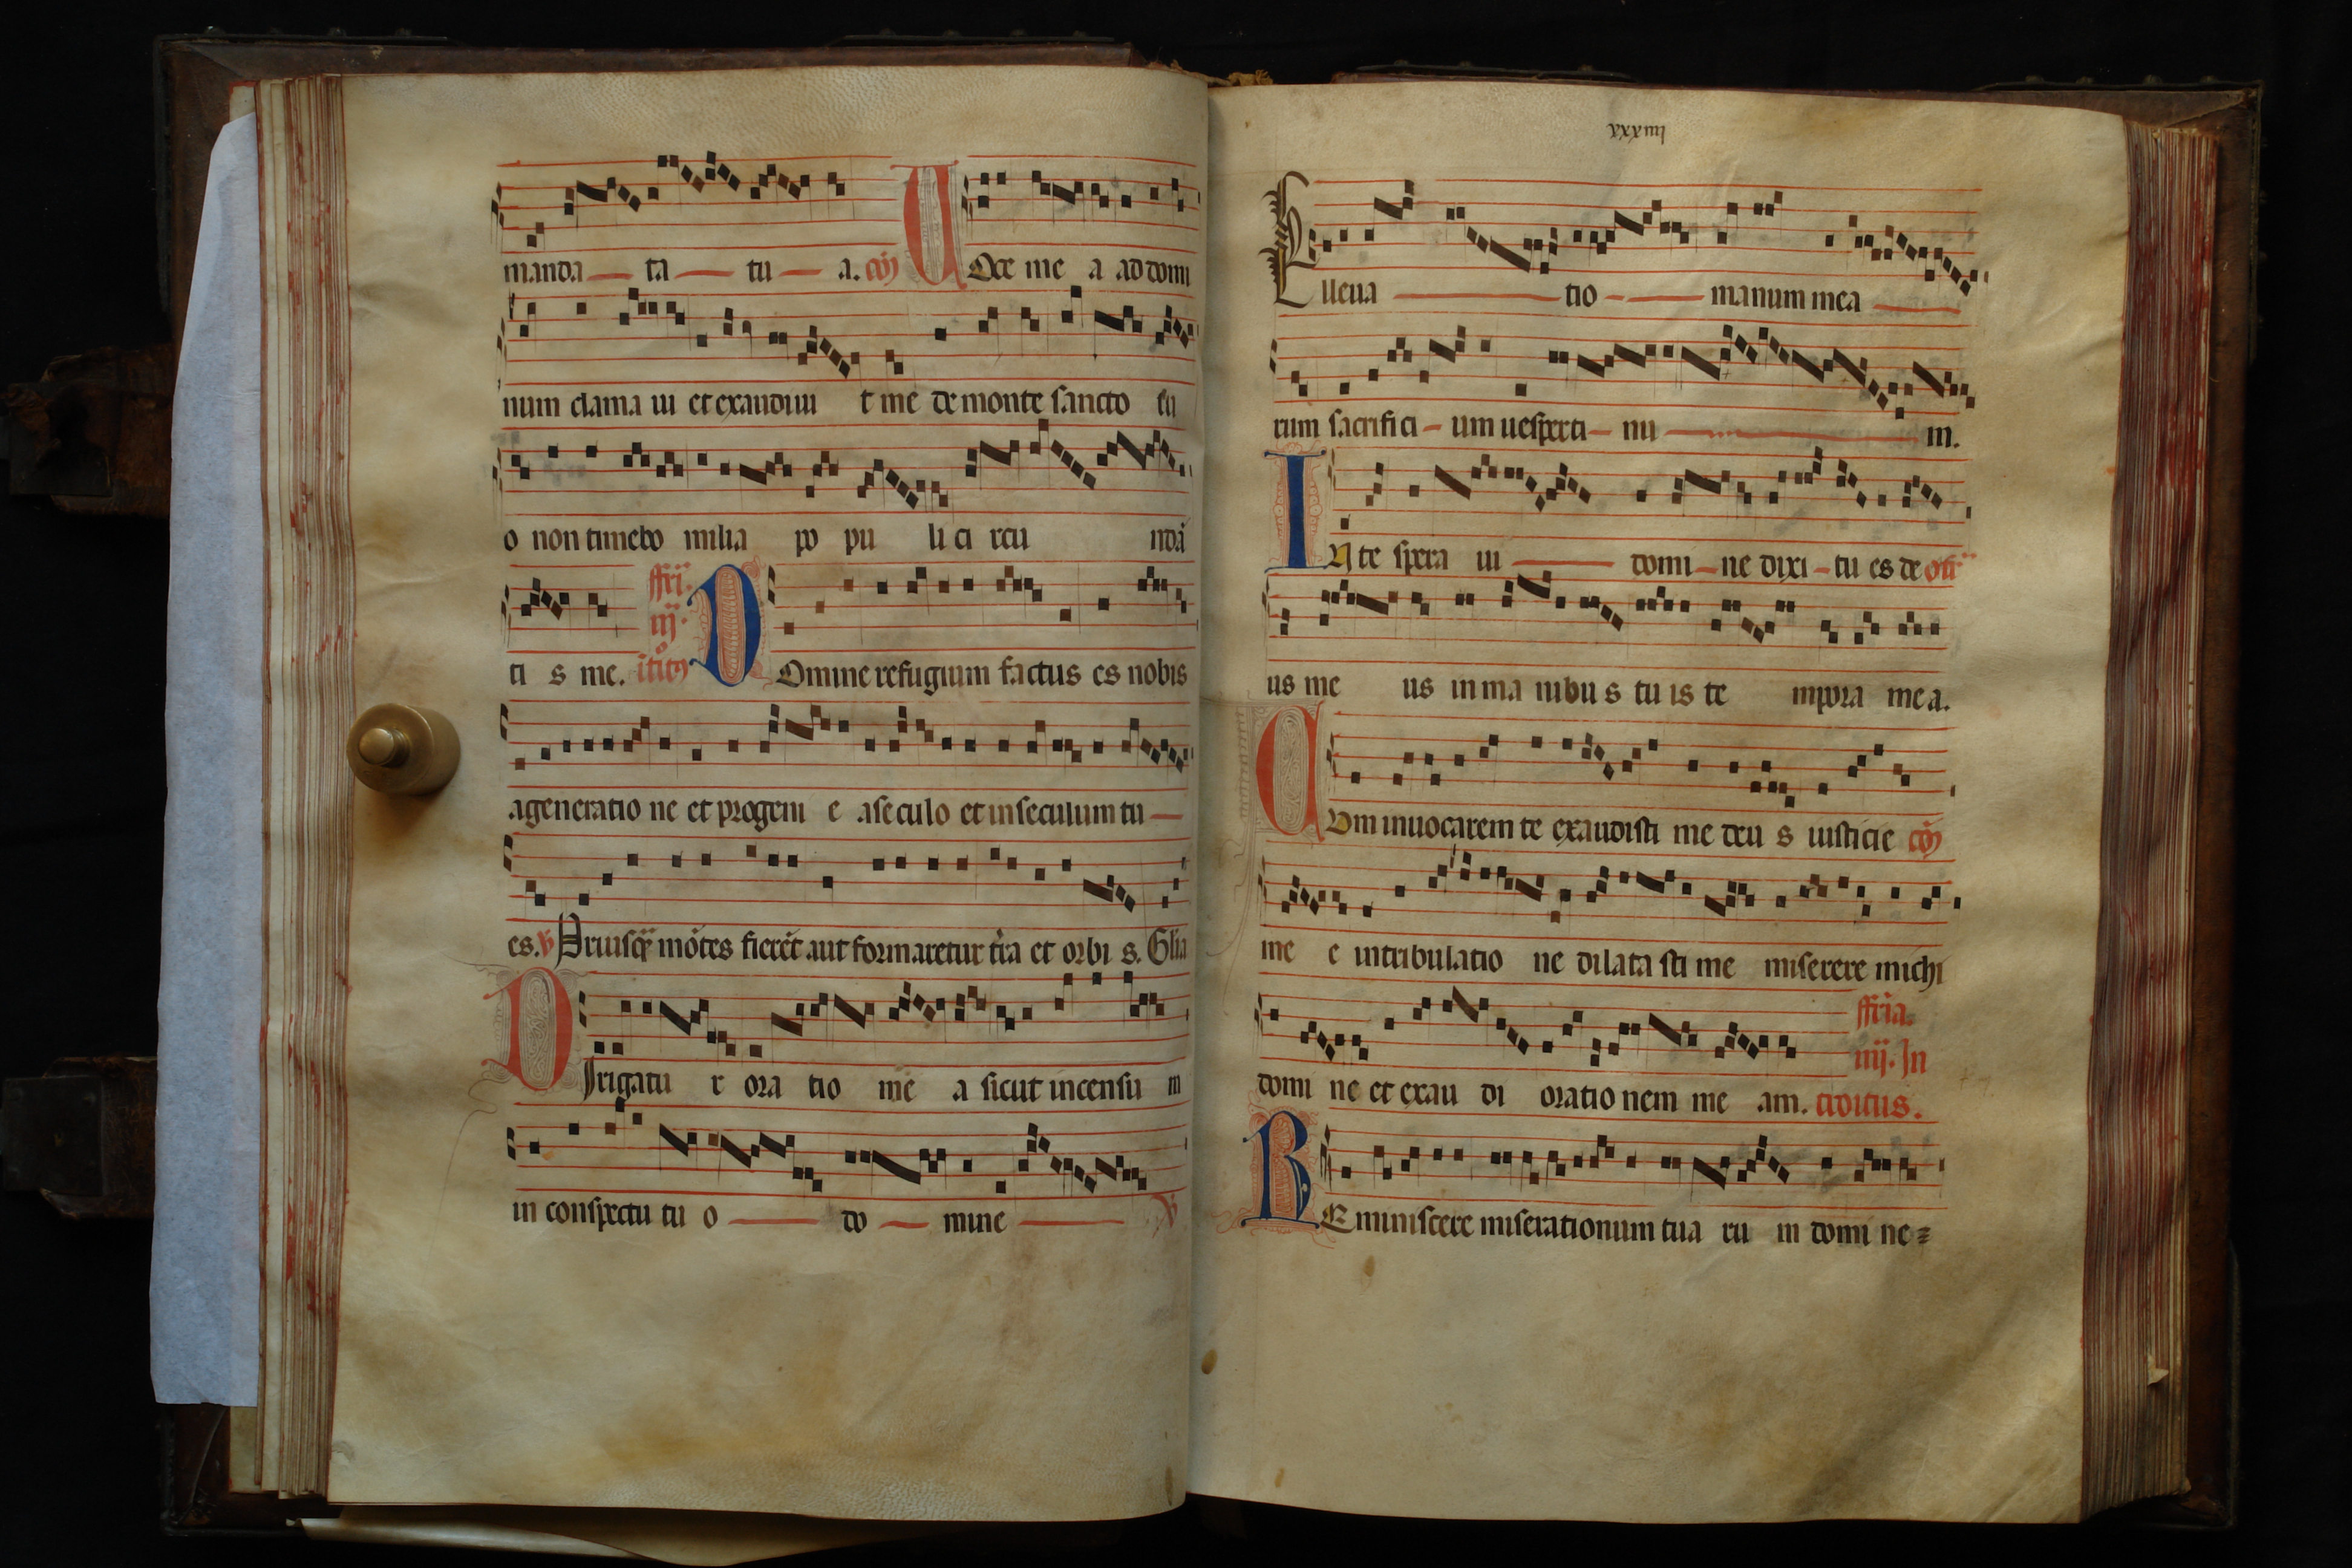 manda ta tu a. cōº
VOce me a ad domi
num clama ui et exaudiui t me de monte sancto su
o non timebo milia po pu li ci rcu ndā
ti s me. fferi. iij. itroº
DOmine refugium factus es nobis
a generatio ne et progeni e a seculo et in seculum tu
es. ℣ Priusq̄ mōtes fierēt aut formaretur t̄ra et orbi s. Gl̄ia
DIrigatu r ora tio me a sicut incensu m
in conspectu tu o do mine ℣
xxxiiij
ELleua tio manum mea
rum sacrifici um uesperti nu m.
IN te spera ui domi ne dixi tu es de off̄
us me us in ma nibu s tu is te mpora me a.
CUm inuocarem te exaudisti me deu s iusticie cōº
me e in tribulatio ne dilata sti me miserere michi
domi ne et exau di oratio nem me am. fferia. iiij. In troitus.
REminiscere miserationum tua ru m domi ne